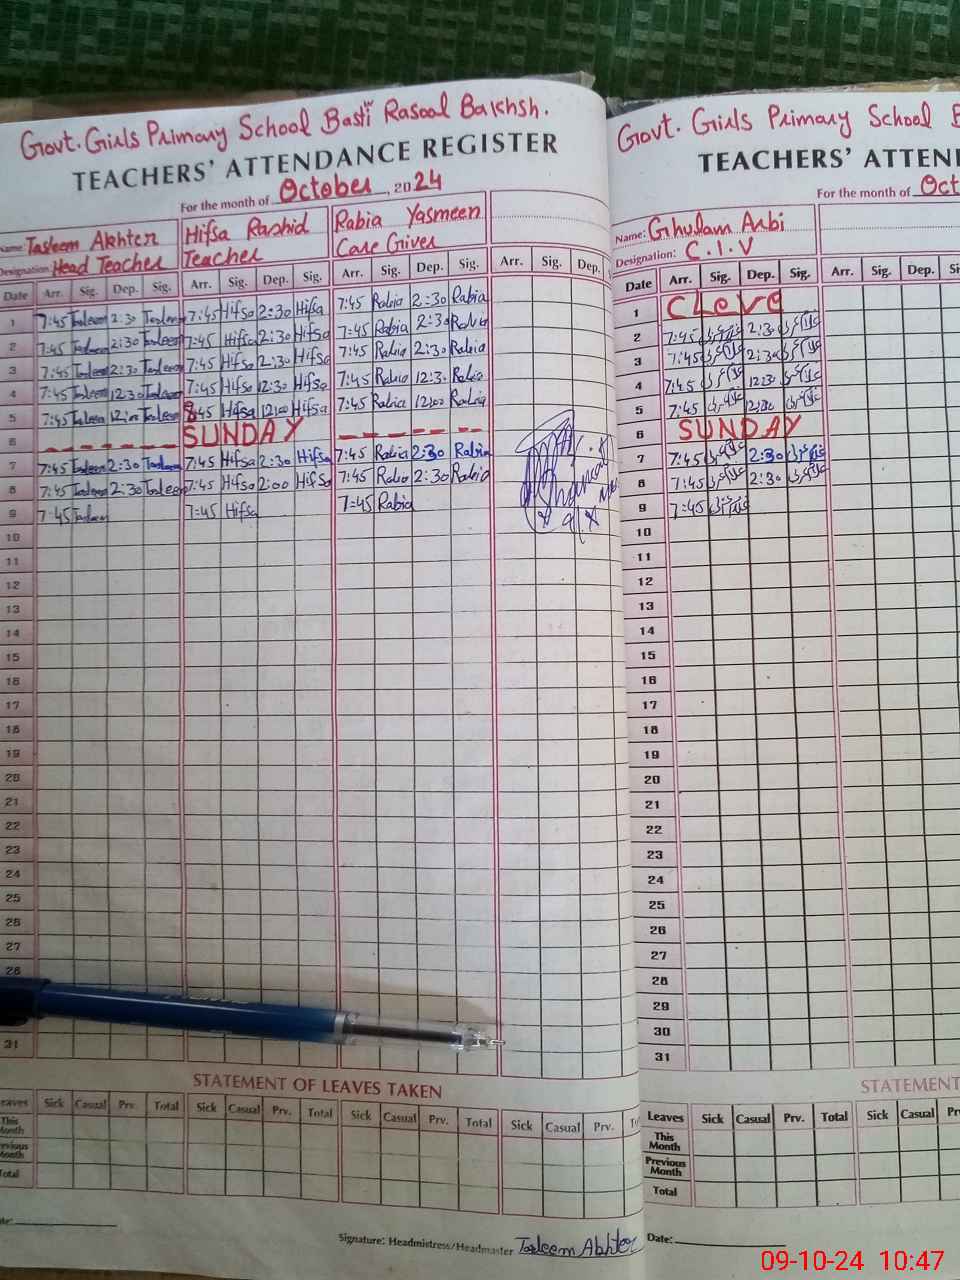 Govt. Girls Primary School Basti Rasool Bakhsh.
TEACHERS' ATTENDANCE REGISTER
For the month of October, 2024
Name: Tasleem Akhter Hifsa Rashid Rabia Yasmeen
Designation: Head Teacher Teacher Care Giver
Date Arr. Sig. Dep. Sig. Arr. Sig. Dep. Sig. Arr. Sig. Dep. Sig. Arr. Sig. Dep.
1 7:45 Tasleem 2:30 Tasleem 7:45 Hifsa 2:30 Hifsa 7:45 Rabia 2:30 Rabia
2 7:45 Tasleem 2:30 Tasleem 7:45 Hifsa 2:30 Hifsa 7:45 Rabia 2:30 Rabia
3 7:45 Tasleem 2:30 Tasleem 7:45 Hifsa 2:30 Hifsa 7:45 Rabia 2:30 Rabia
4 7:45 Tasleem 12:30 Tasleem 7:45 Hifsa 12:30 Hifsa 7:45 Rabia 12:30 Rabia
5 7:45 Tasleem 12:00 Tasleem 8:45 Hifsa 12:00 Hifsa 7:45 Rabia 12:00 Rabia
6 SUNDAY
7 7:45 Tasleem 2:30 Tasleem 7:45 Hifsa 2:30 Hifsa 7:45 Rabia 2:30 Rabia
8 7:45 Tasleem 2:30 Tasleem 7:45 Hifsa 2:00 Hifsa 7:45 Rabia 2:30 Rabia
9 7:45 Tasleem 7:45 Hifsa 7:45 Rabia
10
11
12
13
14
15
16
17
18
19
20
21
22
23
24
25
26
27
28
31
STATEMENT OF LEAVES TAKEN
Leaves Sick Casual Prv. Total Sick Casual Prv. Total Sick Casual Prv. Total Sick Casual Prv.
This Month
Previous Month
Total
Date:
Signature: Headmistress/Headmaster Tasleem Akhter
Govt. Girls Primary School
TEACHERS' ATTEN
For the month of Oct
Name: Ghulam Arbi
Designation: C.I.V
Date Arr. Sig. Dep. Sig. Arr. Sig. Dep.
1 CLeve
2 7:45 2:30
3 7:45 2:30
4 7:45 12:30
5 7:45 12:00
6 SUNDAY
7 7:45 2:30
8 7:45 2:30
9 7:45
10
11
12
13
14
15
16
17
18
19
20
21
22
23
24
25
26
27
28
29
30
31
STATEMENT
Leaves Sick Casual Prv. Total Sick Casual
This Month
Previous Month
Total
Date:
09-10-24 10:47